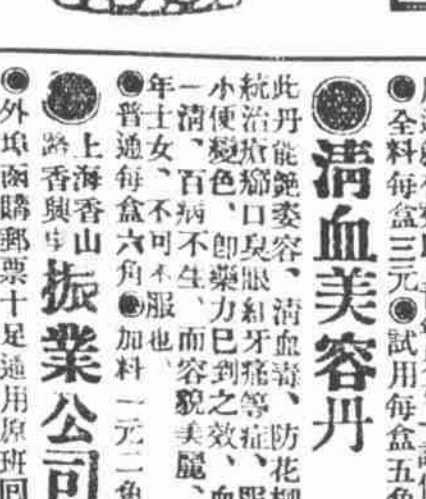 ●全料每盒三元●試用每盒五角
●清血美容丹
此丹能艷姿容、清血毒、防花柳
統治疳癤口臭眼紅牙痛等症、服
小便變色、卽藥力已到之效、血
一清、百病不生、而容貌美麗、
年士女、不可不服也、
●普通每盒六角●加料一元二角
●上海香山
路香興里
振業公司
●外埠函購郵票十足通用原班回